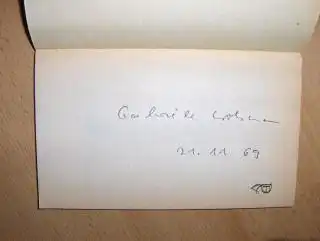 Gabriele Wohmann
21. 11. 69